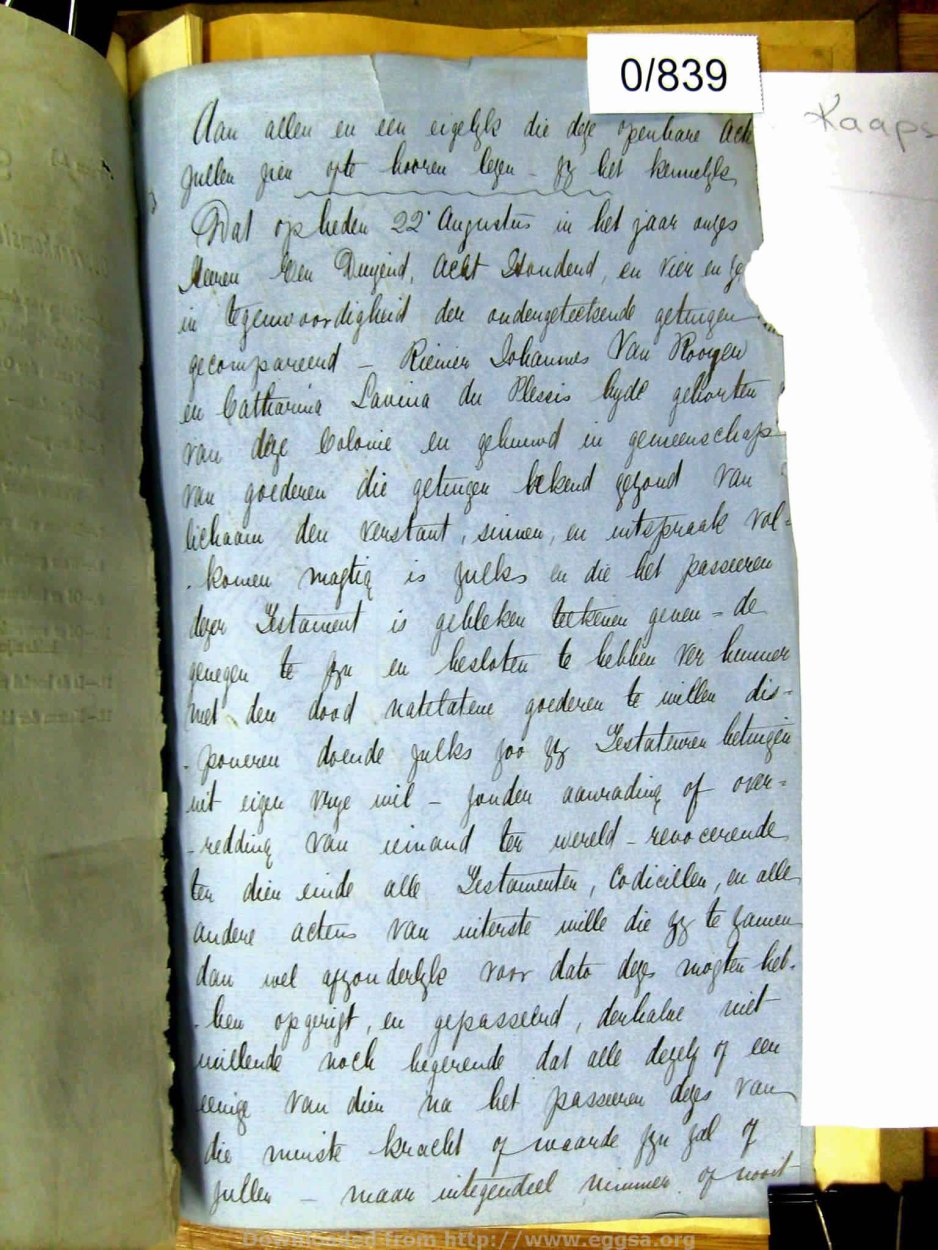 0/839
Kaaps
Aan allen en een eigelyk die deze openbare Acte
zullen zien ofte hooren lezen - zy het kennelyk
Dat op heden 22' Augustus in het jaar onzes
Heeren Een Duyzend, Acht Hondend, en Vier en
in tegenwoordigheid der ondergeteekende getuigen
gecompareerd - Riemier Johannes Van Rooyen
en Catharina Lavina du Plessis byde geboorten
van deze Colonie en gehuwd in gemeenschap
van goederen die getuigen bekend gezond van
lichaam den verstant, sinnen, en uitspraak vol=
-komen magtig is zulks en die het passeeren
dezer Testament is gebleken teekenen geven - de
genegen te zyn en besloten te hebben ver hunner
met den dood natelatene goederen te willen dis-
-poneren doende zulks zoo zy Testateuren betuigen
uit eigen vrye wil - zonder aanrading of over=
-redding van iemand ter wereld - revocerende
ten dien einde alle Testamenten, Codicillen, en alle
andere actens van uiterste wille die zy te zamen
dan wel afzonderlyk voor dato dezes mogten heb-
-ben opgerigt, en gepasseerd, derhalve niet
willende noch begerende dat alle dezelf of een
eenige van dien na het passeeren dezes van
die minste kracht of waarde zyn zal of
zullen - maar integendeel nimmer of nooit
Downloaded from http://www.eggsa.org